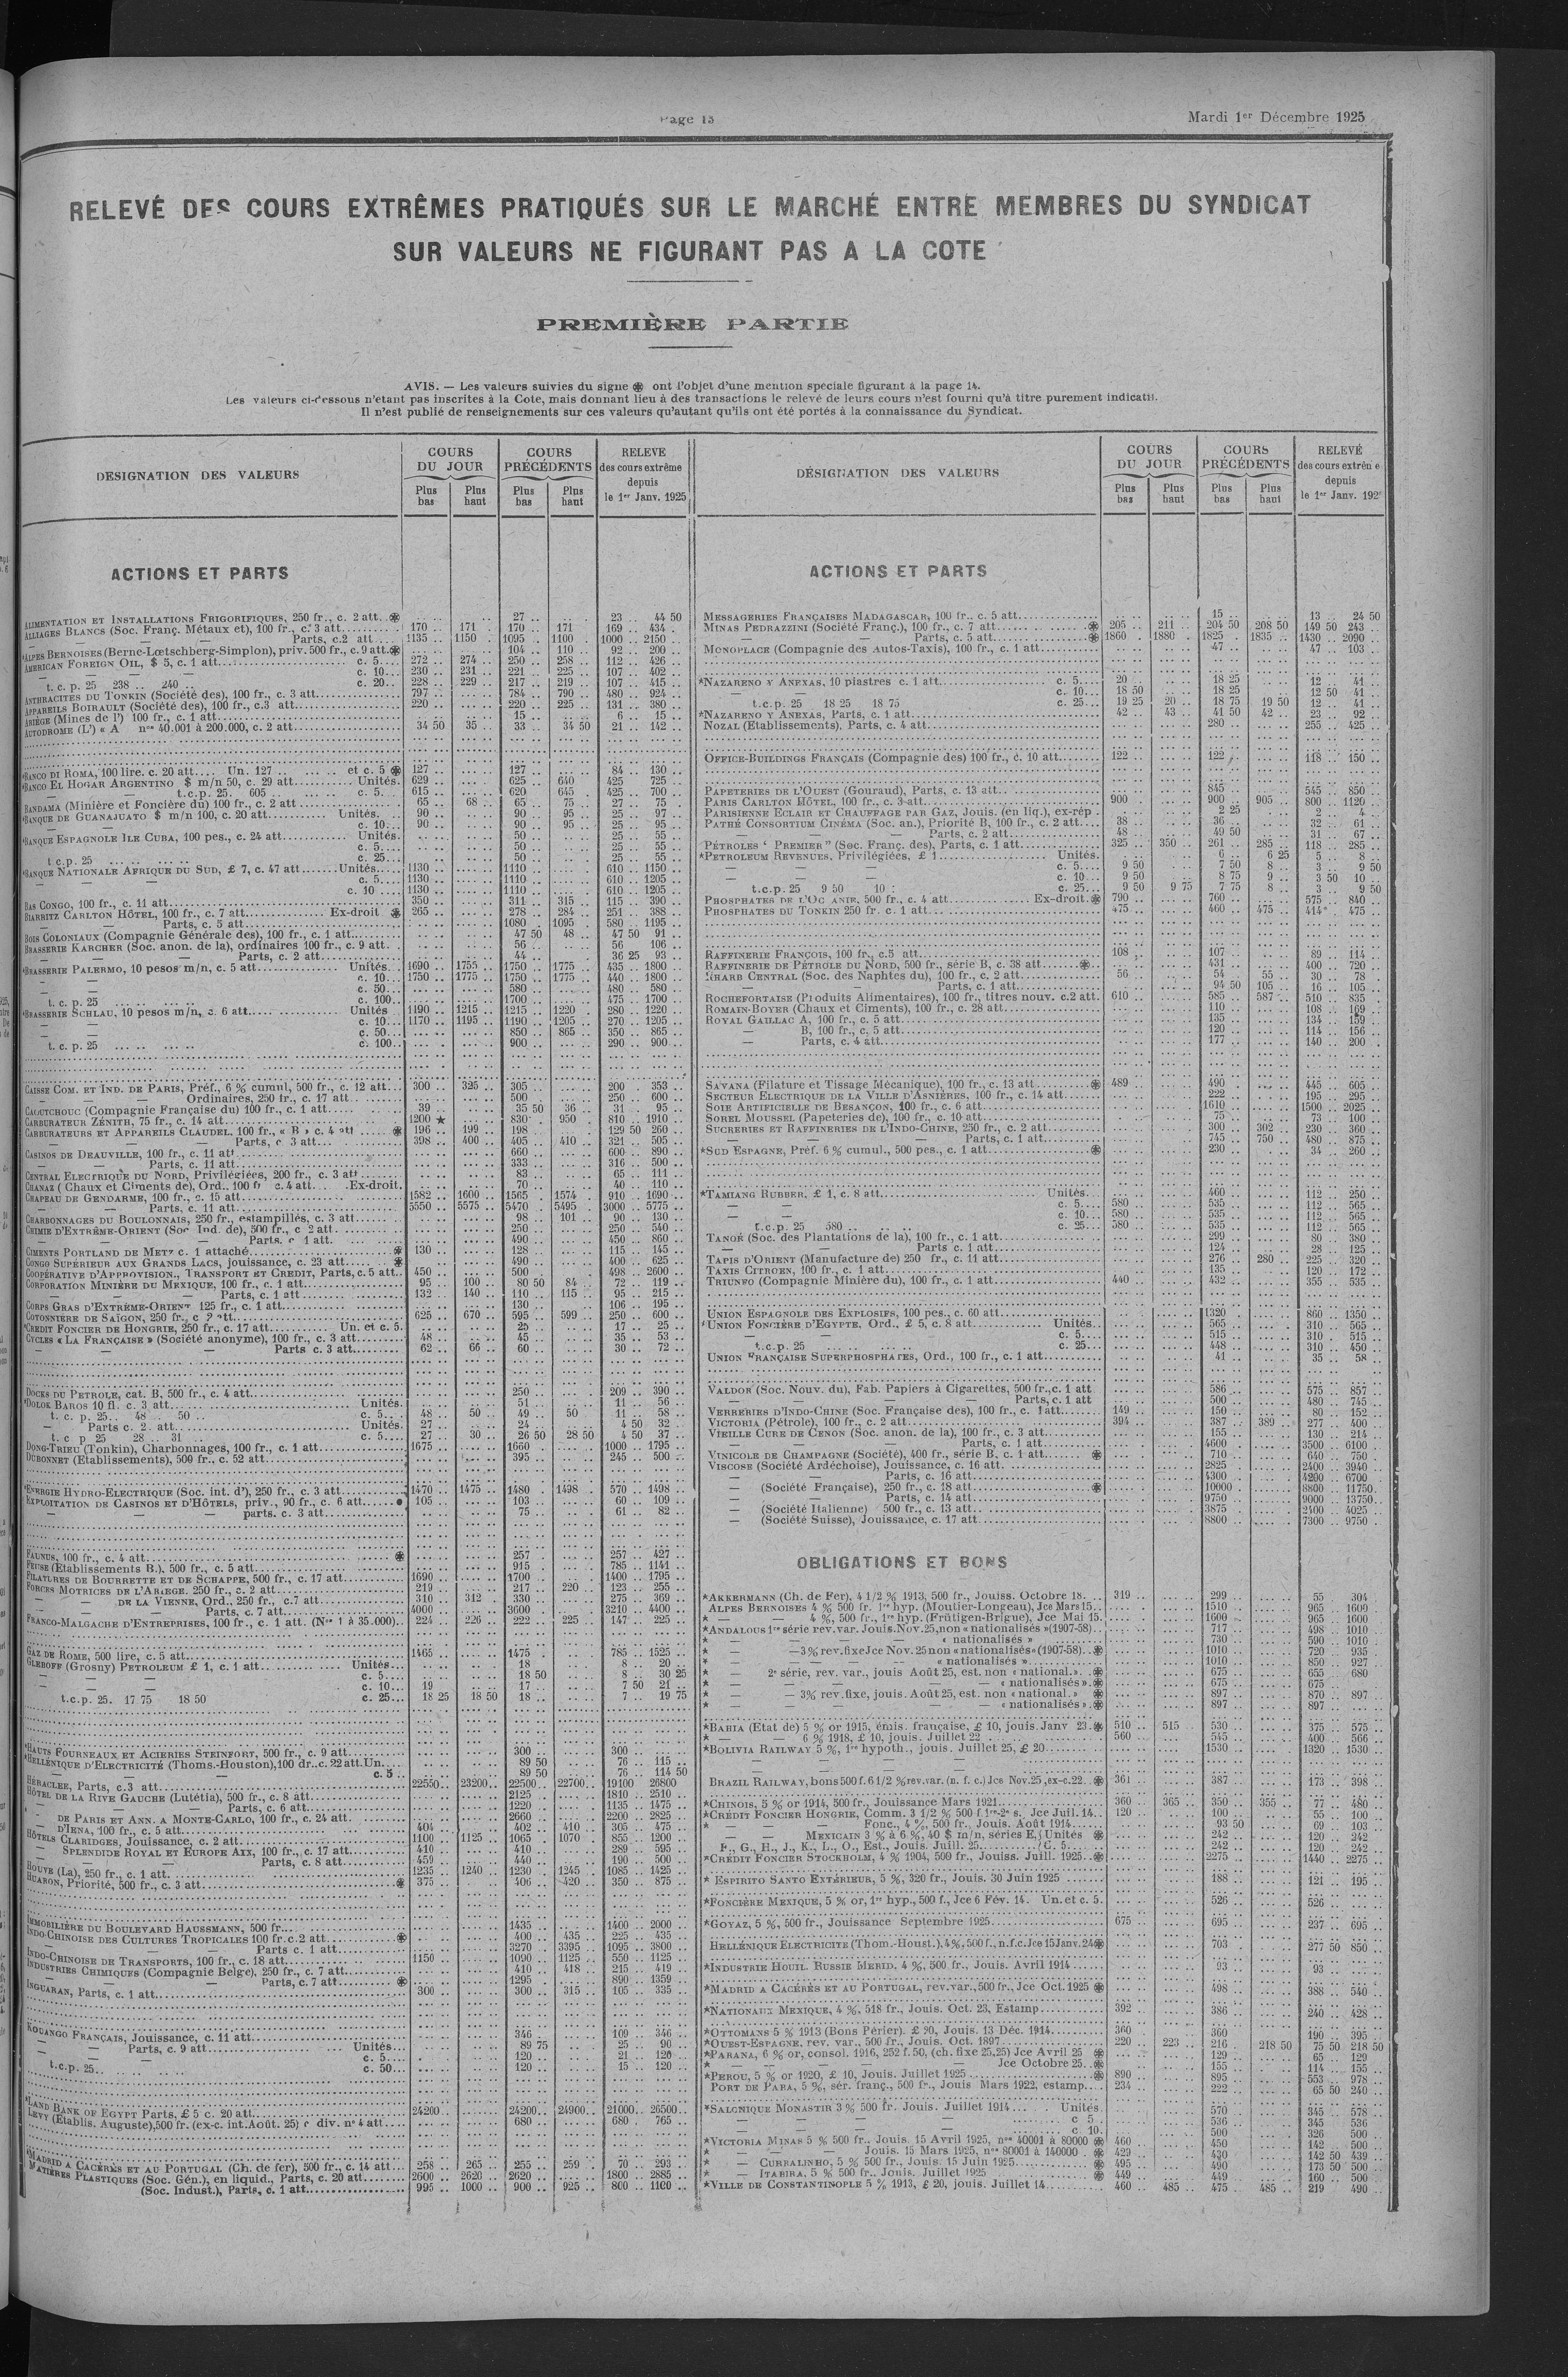 Page 13
Mardi 1er Décembre 1925
RELEVÉ DES COURS EXTRÊMES PRATIQUÉS SUR LE MARCHÉ ENTRE MEMBRES DU SYNDICAT
SUR VALEURS NE FIGURANT PAS A LA COTE
PREMIÈRE PARTIE
AVIS. — Les valeurs suivies du signe ❋ ont l'objet d'une mention speciale figurant à la page 14.
Les valeurs ci-dessous n'étant pas inscrites à la Cote, mais donnant lieu à des transactions le relevé de leurs cours n'est fourni qu'à titre purement indicatif.
Il n'est publié de renseignements sur ces valeurs qu'autant qu'ils ont été portés à la connaissance du Syndicat.
DESIGNATION DES VALEURS
COURS DU JOUR
Plus bas
Plus haut
COURS PRÉCÉDENTS
Plus bas
Plus haut
RELEVE des cours extrême depuis le 1er Janv. 1925
ACTIONS ET PARTS
ALIMENTATION ET INSTALLATIONS FRIGORIFIQUES, 250 fr., c. 2 att. ❋ 27 .. 23 .. 44 50
ALLIAGES BLANCS (Soc. Franç. Métaux et), 100 fr., c. 3 att. 170 .. 171 .. 170 .. 171 169 .. 434
— — Parts, c.2 att 1135 .. 1150 .. 1095 .. 1100 1000 .. 2150 ..
*ALPES BERNOISES (Berne-Lœtschberg-Simplon), priv. 500 fr., c. 9 att. ❋ 104 .. 110 .. 92 .. 200 ..
AMERICAN FOREIGN OIL, $ 5, c. 1 att. c. 5 272 .. 274 .. 250 .. 258 .. 112 .. 426 ..
— — c. 10 230 .. 231 .. 221 .. 225 .. 107 .. 402 ..
t. c. p. 25 238 .. 240 .. c. 20 228 .. 229 .. 217 .. 219 .. 107 .. 415 ..
ANTHRACITES DU TONKIN (Société des), 100 fr., c. 3 att. 797 .. 784 .. 790 .. 480 .. 924 ..
APPAREILS BOIRAULT (Société des), 100 fr., c.3 att. 220 .. 220 .. 225 .. 131 .. 380 ..
ARIÈGE (Mines de l') 100 fr., c. 1 att. 15 .. 6 .. 15 ..
AUTODROME (L') « A nos 40.001 à 200.000, c. 2 att. 34 50 35 .. 33 .. 34 50 21 .. 142 ..
*BANCO DI ROMA, 100 lire. c. 20 att. Un. 127 .. et c. 5 ❋ 127 .. 127 .. 84 .. 130 ..
*BANCO EL HOGAR ARGENTINO $ m/n 50, c. 29 att. Unités. 629 .. 625 .. 640 425 .. 725 ..
t.c.p. 25. 605 .. c. 5. 615 .. 620 .. 645 425 .. 700 ..
BANDAMA (Minière et Foncière du) 100 fr., c. 2 att 65 .. 68 .. 65 .. 75 .. 27 .. 75 ..
*BANQUE DE GUANAJUATO $ m/n 100, c. 20 att. Unités. 90 .. 90 .. 95 .. 25 .. 97 ..
c. 10 90 .. 90 .. 95 .. 25 .. 95 ..
*BANQUE ESPAGNOLE ILE CUBA, 100 pes., c. 24 att. Unités. 50 .. 25 .. 55 ..
c. 5 50 .. 25 .. 55 ..
t c.p. 25 c. 25 50 .. 25 .. 55 ..
*BANQUE NATIONALE AFRIQUE DU SUD, £ 7, c. 47 att. Unités 1130 .. 1110 .. 610 .. 1150 ..
c. 5 1130 .. 1110 .. 610 .. 1205 ..
c. 10 1130 .. 1110 .. 610 .. 1205 ..
BAS CONGO, 100 fr., c. 11 att. 350 .. 311 .. 315 .. 115 .. 390 ..
BIARRITZ CARLTON HÔTEL, 100 fr., c. 7 att. Ex-droit ❋ 265 .. 278 .. 284 .. 251 .. 388 ..
— — Parts, c. 5 att. 1080 .. 1095 .. 580 .. 1195 ..
BOIS COLONIAUX (Compagnie Générale des), 100 fr., c. 1 att. 47 50 48 .. 47 50 91 ..
BRASSERIE KARCHER (Soc. anon. de la), ordinaires 100 fr., c. 9 att. 56 .. 56 .. 106 ..
— — Parts, c. 2 att. 44 .. 36 25 93 ..
*BRASSERIE PALERMO, 10 pesos m/n, c. 5 att. Unités 1690 .. 1755 .. 1750 .. 1775 .. 435 .. 1800 ..
c. 10 1750 .. 1775 .. 1750 .. 1775 .. 440 .. 1800 ..
c. 50 580 .. 480 .. 580 ..
t. c. p. 25 c. 100 1700 .. 475 .. 1700 ..
*BRASSERIE SCHLAU, 10 pesos m/n, c. 6 att. Unités 1190 .. 1215 .. 1215 .. 1220 .. 280 .. 1220 ..
c. 10 1170 .. 1195 .. 1190 .. 1205 .. 270 .. 1205 ..
c. 50 850 .. 865 .. 350 .. 865 ..
t. c. p. 25 c. 100 900 .. 290 .. 900 ..
CAISSE COM. ET IND. DE PARIS, Préf., 6 % cumul, 500 fr., c. 12 att. 300 .. 325 .. 305 .. 200 353 ..
— — Ordinaires, 250 fr., c. 17 att. 500 .. 250 .. 600 ..
CAOUTCHOUC (Compagnie Française du) 100 fr., c. 1 att. 39 .. 35 50 36 .. 31 .. 95 ..
CARBURATEUR ZÉNITH, 75 fr., c. 14 att. 1200 ★ 830 .. 950 .. 810 .. 1910 ..
CARBURATEURS ET APPAREILS CLAUDEL, 100 fr., « B » c. 4 att ❋ 196 .. 199 .. 198 .. 129 50 260 ..
— — Parts, c. 3 att. 398 .. 400 .. 405 .. 410 .. 321 .. 505 ..
CASINOS DE DEAUVILLE, 100 fr., c. 11 att. 660 .. 600 .. 890 ..
— — Parts, c. 11 att. 333 .. 316 .. 500 ..
CENTRAL ELECTRIQUE DU NORD, Privilégiées, 200 fr., c. 3 att. 83 .. 65 .. 111 ..
CHANAZ (Chaux et Ciments de), Ord., 100 fr c. 4 att. Ex-droit. 70 .. 40 .. 110 ..
CHAPEAU DE GENDARME, 100 fr., c. 15 att. 1582 .. 1600 .. 1565 1574 910 .. 1690 ..
— — Parts, c. 11 att. 5550 .. 5575 .. 5470 .. 5495 3000 .. 5775 ..
CHARBONNAGES DU BOULONNAIS, 250 fr., estampillés, c. 3 att. 98 .. 101 .. 90 .. 130 ..
CHIMIE D'EXTRÊME-ORIENT (Soc Ind. de), 500 fr., c 2 att. 250 .. 250 .. 540 ..
— — Parts. c 1 att. 490 .. 450 .. 860 ..
CIMENTS PORTLAND DE METZ c. 1 attaché ❋ 130 .. 128 .. 115 .. 145 ..
CONGO SUPÉRIEUR AUX GRANDS LACS, jouissance, c. 23 att. ❋ 490 .. 400 .. 625 ..
COOPÉRATIVE D'APPROVISION., TRANSPORT ET CREDIT, Parts, c. 5 att. 450 .. 500 .. 498 .. 2600 ..
CORPORATION MINIÈRE DU MEXIQUE, 100 fr., c. 1 att. 95 .. 100 .. 80 50 84 .. 72 .. 119 ..
— — Parts, c. 1 att 132 .. 140 .. 110 .. 115 .. 95 .. 215 ..
CORPS GRAS D'EXTRÊME-ORIENT 125 fr., c. 1 att. 130 .. 106 .. 195 ..
COTONNIÈRE DE SAÏGON, 250 fr., c 2 att. 625 .. 670 .. 595 .. 599 .. 250 .. 600 ..
*CRÉDIT FONCIER DE HONGRIE, 250 fr., c. 17 att. Un. et c. 5. 25 .. 17 .. 25 ..
CYCLES « LA FRANÇAISE » (Société anonyme), 100 fr., c. 3 att. 48 .. 45 .. 35 .. 53 ..
— — Parts c. 3 att. 62 .. 66 .. 60 .. 30 .. 72 ..
DOCKS DU PETROLE, cat. B, 500 fr., c. 4 att. 250 .. 209 .. 390 ..
*DOLOK BAROS 10 fl. c. 3 att. Unités. 51 .. 11 .. 56 ..
t. c. p. 25 48 .. 50 .. c. 5 48 .. 50 .. 49 .. 50 11 .. 58 ..
— Parts c. 2. att. Unités. 27 .. 24 .. 4 50 32 ..
t. c p 25 28 .. 31 .. c. 5 27 .. 30 .. 26 50 28 50 4 50 37 ..
DONG-TRIEU (Tonkin), Charbonnages, 100 fr., c. 1 att. 1675 .. 1660 .. 1000 .. 1795 ..
DUBONNET (Etablissements), 500 fr., c. 52 att. 395 .. 245 .. 500 ..
*ENERGIE HYDRO-ELECTRIQUE (Soc. int. d'), 250 fr., c. 3 att. 1470 .. 1475 .. 1480 .. 1498 .. 570 .. 1498 ..
EXPLOITATION DE CASINOS ET D'HÔTELS, priv., 90 fr., c. 6 att. ● 105 .. 103 .. 60 .. 109 ..
— — parts. c. 3 att. 75 .. 61 .. 82 ..
FAUNUS, 100 fr., c. 4 att. ❋ 257 .. 257 .. 427 ..
FEUSE (Etablissements B.), 500 fr., c. 5 att. 915 .. 785 .. 1141 ..
FILATURES DE BOURRETTE ET DE SCHAPPE, 500 fr., c. 17 att. 1690 .. 1700 .. 1400 .. 1795 ..
FORCES MOTRICES DE L'ARIEGE. 250 fr., c. 2 att. 219 .. 217 .. 220 .. 123 .. 255 ..
— — DE LA VIENNE, Ord., 250 fr., c.7 att. 310 .. 312 .. 330 .. 275 .. 369 ..
— — Parts, c. 7 att. 4000 .. 3600 .. 3210 .. 4400 ..
FRANCO-MALGACHE D'ENTREPRISES, 100 fr., c. 1 att. (Nos 1 à 35.000). 224 .. 226 .. 222 .. 225 .. 147 .. 225 ..
GAZ DE ROME, 500 lire, c. 5 att. 1465 .. 1475 .. 785 .. 1525 ..
GLEBOFF (Grosny) PETROLEUM £ 1, c. 1 att. Unités 18 .. 8 .. 20 ..
c. 5 18 50 8 .. 30 25
c. 10 19 .. 17 .. 7 50 21 ..
t.c.p. 25. 17 75 18 50 c. 25 18 25 18 50 18 .. 7 .. 19 75
*HAUTS FOURNEAUX ET ACIERIES STEINFORT, 500 fr., c. 9 att. 300 .. 300 ..
*HELLÉNIQUE D'ELECTRICITÉ (Thoms.-Houston), 100 dr., c. 22 att. Un. 89 50 76 .. 115 ..
c. 5 89 50 76 .. 114 50
HÉRACLEE, Parts, c.3 att. 22550 .. 23200 .. 22500 .. 22700 .. 19100 26800
HÔTEL DE LA RIVE GAUCHE (Lutétia), 500 fr., c. 8 att. 2125 .. 1810 .. 2510 ..
— — Parts, c. 6 att. 1220 .. 1135 .. 1475 ..
— DE PARIS ET ANN. A MONTE-CARLO, 100 fr., c. 24 att. 2660 .. 2200 .. 2825 ..
— D'IENA, 100 fr., c. 5 att. 404 .. 402 .. 410 .. 305 .. 475 ..
HÔTELS CLARIDGES, Jouissance, c. 2 att. 1100 .. 1125 .. 1065 .. 1070 .. 855 .. 1200 ..
— SPLENDIDE ROYAL ET EUROPE AIX, 100 fr., c. 17 att. 410 .. 410 .. 289 .. 595 ..
— — Parts, c. 8 att. 459 .. 440 .. 190 .. 500 ..
HOUVE (La), 250 fr., c. 1 att. 1235 .. 1240 .. 1230 .. 1245 .. 1085 .. 1425 ..
HUARON, Priorité, 500 fr., c. 3 att. ❋ 375 .. 406 .. 420 .. 350 .. 875 ..
IMMOBILIÈRE DU BOULEVARD HAUSSMANN, 500 fr. 1435 .. 1400 .. 2000 ..
INDO-CHINOISE DES CULTURES TROPICALES 100 fr. c.2 att. ❋ 400 .. 435 .. 225 .. 435 ..
— — Parts c. 1 att. 3270 .. 3395 .. 1095 .. 3800 ..
INDO-CHINOISE DE TRANSPORTS, 100 fr., c. 18 att. 1150 .. 1090 .. 1125 .. 550 .. 1125 ..
INDUSTRIES CHIMIQUES (Compagnie Belge), 250 fr., c. 7 att. 410 .. 418 .. 215 .. 419 ..
— — Parts, c. 7 att. ❋ 1295 .. 890 .. 1359 ..
INGUARAN, Parts, c. 1 att. 300 .. 300 .. 315 .. 105 .. 335 ..
KOUANGO FRANÇAIS, Jouissance, c. 11 att. 346 .. 109 346 ..
— Parts, c. 9 att. Unités 89 75 25 .. 90 ..
c. 5 120 .. 21 .. 120 ..
t.c.p. 25 c. 50 120 .. 15 .. 120 ..
*LAND BANK OF EGYPT Parts, £ 5 c. 20 att. 24200 .. 24200 .. 24900 .. 21000 .. 26500 ..
LEVY (Etablis. Auguste), 500 fr. (ex-c. int. Août. 25) c div. n° 4 att. 680 .. 680 .. 765 ..
*MADRID A CACÉRÈS ET AU PORTUGAL (Ch. de fer), 500 fr., c. 14 att. 258 .. 265 .. 255 .. 259 .. 70 .. 293 ..
MATIÈRES PLASTIQUES (Soc. Gén.), en liquid., Parts, c. 20 att. 2600 .. 2620 .. 2620 .. 1800 .. 2885 ..
(Soc. Indust.), Parts, c. 1 att. 995 .. 1000 .. 900 .. 925 .. 800 .. 1100 ..
DÉSIGNATION DES VALEURS
COURS DU JOUR
Plus bas
Plus haut
COURS PRÉCÉDENTS
Plus bas
Plus haut
RELEVÉ des cours extrême depuis le 1er Janv. 192
ACTIONS ET PARTS
MESSAGERIES FRANÇAISES MADAGASCAR, 100 fr., c. 5 att. 15 .. 13 .. 24 50
MINAS PEDRAZZINI (Société Franç.), 100 fr., c. 7 att. ❋ 205 .. 211 .. 204 50 208 50 149 50 243 ..
— — Parts, c. 5 att. ❋ 1860 .. 1880 .. 1825 .. 1835 .. 1430 .. 2090 ..
MONOPLACE (Compagnie des Autos-Taxis), 100 fr., c. 1 att. 47 .. 47 .. 103 ..
*NAZARENO Y ANEXAS, 10 piastres c. 1 att. c. 5 20 .. 18 25 12 .. 41 ..
c. 10 18 50 18 25 12 50 41 ..
t.c.p. 25 18 25 18 75 c. 25 19 25 20 .. 18 75 19 50 12 .. 41 ..
*NAZARENO Y ANEXAS, Parts, c. 1 att. 42 .. 43 .. 41 50 42 .. 23 .. 92 ..
NOZAL (Etablissements), Parts, c. 4 att. 280 .. 255 .. 425 ..
OFFICE-BUILDINGS FRANÇAIS (Compagnie des) 100 fr., c. 10 att. 122 .. 122 .. 118 .. 150 ..
PAPETERIES DE L'OUEST (Gouraud), Parts, c. 13 att. 845 .. 545 .. 850 ..
PARIS CARLTON HÔTEL, 100 fr., c. 3 att. 900 .. 900 .. 905 .. 800 .. 1120 ..
PARISIENNE ECLAIR ET CHAUFFAGE PAR GAZ, Jouis. (en liq.), ex-rép. 2 25 2 .. 4 ..
PATHÉ CONSORTIUM CINÉMA (Soc. an.), Priorité B, 100 fr., c. 2 att. 38 .. 36 .. 32 .. 61 ..
— — Parts, c. 2 att. 48 .. 49 50 31 .. 67 ..
PÉTROLES " PREMIER " (Soc. Franç. des), Parts, c. 1 att. 325 .. 350 .. 261 .. 285 .. 118 .. 285 ..
*PETROLEUM REVENUES, Privilégiées, £ 1 Unités. 6 .. 6 25 5 .. 8 ..
c. 5 9 50 7 50 8 .. 3 .. 9 50
c. 10 9 50 8 75 9 .. 3 50 10 ..
t.c.p. 25 9 50 10 : c. 25 9 50 9 75 7 75 8 .. 3 .. 9 50
PHOSPHATES DE L'OCÉANIE, 500 fr., c. 4 att. Ex-droit. ❋ 790 .. 760 .. 575 .. 840 ..
PHOSPHATES DU TONKIN 250 fr. c. 1 att. 475 .. 460 .. 475 .. 414 475 ..
RAFFINERIE FRANÇOIS, 100 fr., c.5 att. 108 .. 107 .. 89 .. 114 ..
RAFFINERIE DE PÉTROLE DU NORD, 500 fr., série B, c. 38 att. ❋ 431 .. 400 .. 720 ..
RHARB CENTRAL (Soc. des Naphtes du), 100 fr., c. 2 att. 56 .. 54 .. 55 .. 30 .. 78 ..
— — Parts, c. 1 att. 94 50 105 .. 16 .. 105 ..
ROCHEFORTAISE (Produits Alimentaires), 100 fr., titres nouv. c.2 att. 610 .. 585 .. 587 .. 510 .. 835 ..
ROMAIN-BOYER (Chaux et Ciments), 100 fr., c. 28 att. 110 .. 108 .. 169 ..
ROYAL GAILLAC A, 100 fr., c. 5 att. 135 .. 134 .. 159 ..
— B, 100 fr., c. 5 att. 120 .. 114 .. 156 ..
— Parts, c. 4 att. 177 .. 140 .. 200 ..
SAVANA (Filature et Tissage Mécanique), 100 fr., c. 13 att. ❋ 489 .. 490 .. 445 .. 605 ..
SECTEUR ELECTRIQUE DE LA VILLE D'ASNIÈRES, 100 fr., c. 14 att. 222 .. 195 .. 295 ..
SOIE ARTIFICIELLE DE BESANÇON, 100 fr., c. 6 att. 1610 .. 1500 .. 2025 ..
SOREL MOUSSEL (Papeteries de), 100 fr., c. 10 att. 75 .. 73 .. 100 ..
SUCRERIES ET RAFFINERIES DE L'INDO-CHINE, 250 fr., c. 2 att. 300 .. 302 .. 230 .. 360 ..
— — Parts, c. 1 att. 745 .. 750 .. 480 .. 875 ..
*SUD ESPAGNE, Préf. 6 % cumul., 500 pes., c. 1 att. ❋ 230 .. 34 .. 260 ..
*TAMIANG RUBBER, £ 1, c. 8 att. Unités. 460 .. 112 .. 250 ..
c. 5 580 .. 535 .. 112 .. 565 ..
c. 10 580 .. 535 .. 112 .. 565 ..
t.c.p. 25 580 .. c. 25 580 .. 535 .. 112 .. 565 ..
TANOÉ (Soc. des Plantations de la), 100 fr., c. 1 att. 299 .. 80 .. 380 ..
— — Parts c. 1 att. 124 .. 28 .. 125 ..
TAPIS D'ORIENT (Manufacture de) 250 fr., c. 11 att. 276 .. 280 .. 225 .. 320 ..
TAXIS CITROEN, 100 fr., c. 1 att. 135 .. 120 .. 172 ..
TRIUNFO (Compagnie Minière du), 100 fr., c. 1 att. 440 .. 432 .. 355 .. 535 ..
UNION ESPAGNOLE DES EXPLOSIFS, 100 pes., c. 60 att. 1320 .. 860 .. 1350 ..
*UNION FONCIÈRE D'EGYPTE, Ord., £ 5, c. 8 att. Unités 565 .. 310 .. 565 ..
c. 5 515 .. 310 .. 515 ..
t.c.p. 25 c. 25 448 .. 310 .. 450 ..
UNION FRANÇAISE SUPERPHOSPHATES, Ord., 100 fr., c. 1 att. 41 .. 35 .. 58 ..
VALDOR (Soc. Nouv. du), Fab. Papiers à Cigarettes, 500 fr., c. 1 att 586 .. 575 .. 857 ..
— — Parts, c. 1 att 500 .. 480 .. 745 ..
VERRERIES D'INDO-CHINE (Soc. Française des), 100 fr., c. 1 att. 149 .. 150 .. 80 .. 152 ..
VICTORIA (Pétrole), 100 fr., c. 2 att. 394 .. 387 .. 389 .. 277 .. 400 ..
VIEILLE CURE DE CENON (Soc. anon. de la), 100 fr., c. 3 att. 155 .. 130 .. 214 ..
— — Parts, c. 1 att. 4600 .. 3500 .. 6100 ..
VINICOLE DE CHAMPAGNE (Société), 400 fr., série B, c. 1 att. ❋ 710 .. 640 .. 750 ..
VISCOSE (Société Ardéchoise), Jouissance, c. 16 att. 2825 .. 2400 .. 3940 ..
— — Parts, c. 16 att. 4300 .. 4200 .. 6700 ..
— (Société Française), 250 fr., c. 18 att. ❋ 10000 .. 8800 .. 11750 ..
— — Parts, c. 14 att. 9750 .. 9000 .. 13750 ..
— (Société Italienne) 500 fr., c. 13 att. 3875 .. 2400 .. 4025 ..
— (Société Suisse), Jouissance, c. 17 att. 8800 .. 7300 .. 9750 ..
OBLIGATIONS ET BONS
*AKKERMANN (Ch. de Fer), 4 1/2 % 1913, 500 fr., Jouiss. Octobre 18. 319 .. 299 .. 55 304
ALPES BERNOISES 4 % 500 fr. 1re hyp. (Moutier-Longeau), Jce Mars 15. 1510 .. 965 1600
* — — 4 %, 500 fr., 1re hyp. (Frütigen-Brigue), Jce Mai 15. 1600 .. 965 1600
*ANDALOUS 1re série rev. var. Jouis. Nov. 25, non « nationalisés » (1907-58). 717 .. 498 1010
* — — « nationalisés » 730 .. 590 1010
* — — 3% rev. fixe Jce Nov. 25 non « nationalisés » (1907-58). ❋ 1010 .. 720 935
* — — « nationalisés » 1010 .. 850 927
* — 2e série, rev. var., jouis Août 25, est. non « national. » ❋ 675 .. 655 680
* — — « nationalisés ». ❋ 675 .. 675 ..
* — — 3% rev. fixe, jouis. Août 25, est. non « national. » ❋ 897 .. 870 .. 897 ..
* — — « nationalisés ». ❋ 897 .. 897 ..
*BAHIA (Etat de) 5 % or 1915, émis. française, £ 10, jouis. Janv 23. ❋ 510 .. 515 .. 530 .. 375 .. 575 ..
* — — 6 % 1918, £ 10, jouis. Juillet 22 560 .. 545 .. 400 .. 566 ..
*BOLIVIA RAILWAY 5 %, 1re hypoth., jouis. Juillet 25, £ 20 1530 .. 1320 .. 1530 ..
BRAZIL RAILWAY, bons 500 f. 6 1/2 % rev. var. (n. f. c.) Jce Nov. 25, ex-c. 22. ❋ 361 .. 387 .. 173 .. 398 ..
*CHINOIS, 5 % or 1914, 500 fr., Jouissance Mars 1921 360 .. 365 .. 350 .. 355 .. 77 .. 480 ..
*CRÉDIT FONCIER HONGRIE, Comm. 3 1/2 % 500 f. 1re-2e s. Jce Juil. 14. 120 .. 100 .. 55 .. 100 ..
* — — Fonc., 4 %, 500 fr., Jouis. Août 1914 93 50 69 .. 103 ..
— — MEXICAIN 3 % à 6 %, 40 $ m/n, séries E, Unités ❋ 242 .. 120 .. 242
F., G., H., J., K., L., O., Est., Jouis. Juill. 25 C. 5 242 .. 120 .. 242 ..
*CRÉDIT FONCIER STOCKHOLM, 4 % 1904, 500 fr., Jouiss. Juill. 1925. ❋ 2275 .. 1440 .. 2275 ..
* ESPIRITO SANTO EXTÉRIEUR, 5 %, 320 fr., Jouis. 30 Juin 1925 188 .. 121 .. 195 ..
*FONCIÈRE MEXIQUE, 5 % or, 1re hyp., 500 f., Jce 6 Fév. 14. Un. et c. 5. 526 .. 526 ..
*GOYAZ, 5 %, 500 fr., Jouissance Septembre 1925 675 .. 695 .. 237 .. 695 ..
HELLÉNIQUE ELECTRICITE (Thom.-Houst.), 4 %, 500 f., n. f. c. Jce 15 Janv. 24 ❋ 703 .. 277 50 850 ..
*INDUSTRIE HOUIL. RUSSIE MERID. 4 %, 500 fr., Jouis. Avril 1914 93 .. 93 ..
*MADRID A CACÉRÈS ET AU PORTUGAL, rev. var., 500 fr., Jce Oct. 1925 ❋ 498 .. 388 .. 540 ..
*NATIONAUX MEXIQUE, 4 %, 518 fr., Jouis. Oct. 23, Estamp. 392 .. 386 .. 240 .. 428 ..
*OTTOMANS 5 % 1913 (Bons Périer). £ 20, Jouis. 13 Déc. 1914 360 .. 360 .. 190 .. 395 ..
*OUEST-ESPAGNE, rev. var., 500 fr., Jouis. Oct. 1897 220 .. 223 .. 216 .. 218 50 75 50 218 50
*PARANA, 6 % or, consol. 1916, 252 f. 50, (ch. fixe 25,25) Jce Avril 25 ❋ 129 .. 65 .. 129 ..
* — — Jce Octobre 25. ❋ 155 .. 114 .. 155 ..
*PEROU, 5 % or 1920, £ 10, Jouis. Juillet 1925 ❋ 890 .. 895 .. 553 .. 978 ..
PORT DE PARA, 5 %, sér. franç., 500 fr., Jouis Mars 1922, estamp. 234 .. 222 .. 65 50 240 ..
*SALONIQUE MONASTIR 3 % 500 fr. Jouis. Juillet 1914 Unités. 570 .. 345 .. 578 ..
c 5 536 .. 345 536 ..
c 10 500 .. 326 500 ..
*VICTORIA MINAS 5 % 500 fr., Jouis. 15 Avril 1925, nos 40001 à 80000 ❋ 460 .. 450 .. 142 .. 500 ..
* — Jouis. 15 Mars 1925, nos 80001 à 140000 ❋ 429 .. 430 .. 142 50 439 ..
* — CURRALINHO, 5 % 500 fr., Jouis. 15 Juin 1925 ❋ 495 .. 490 .. 173 50 500 ..
* — ITABIRA, 5 % 500 fr., Jouis. Juillet 1925 ❋ 449 .. 449 .. 160 .. 500 ..
*VILLE DE CONSTANTINOPLE 5 % 1913, £ 20, jouis. Juillet 14 460 .. 485 .. 475 .. 485 .. 219 490 ..